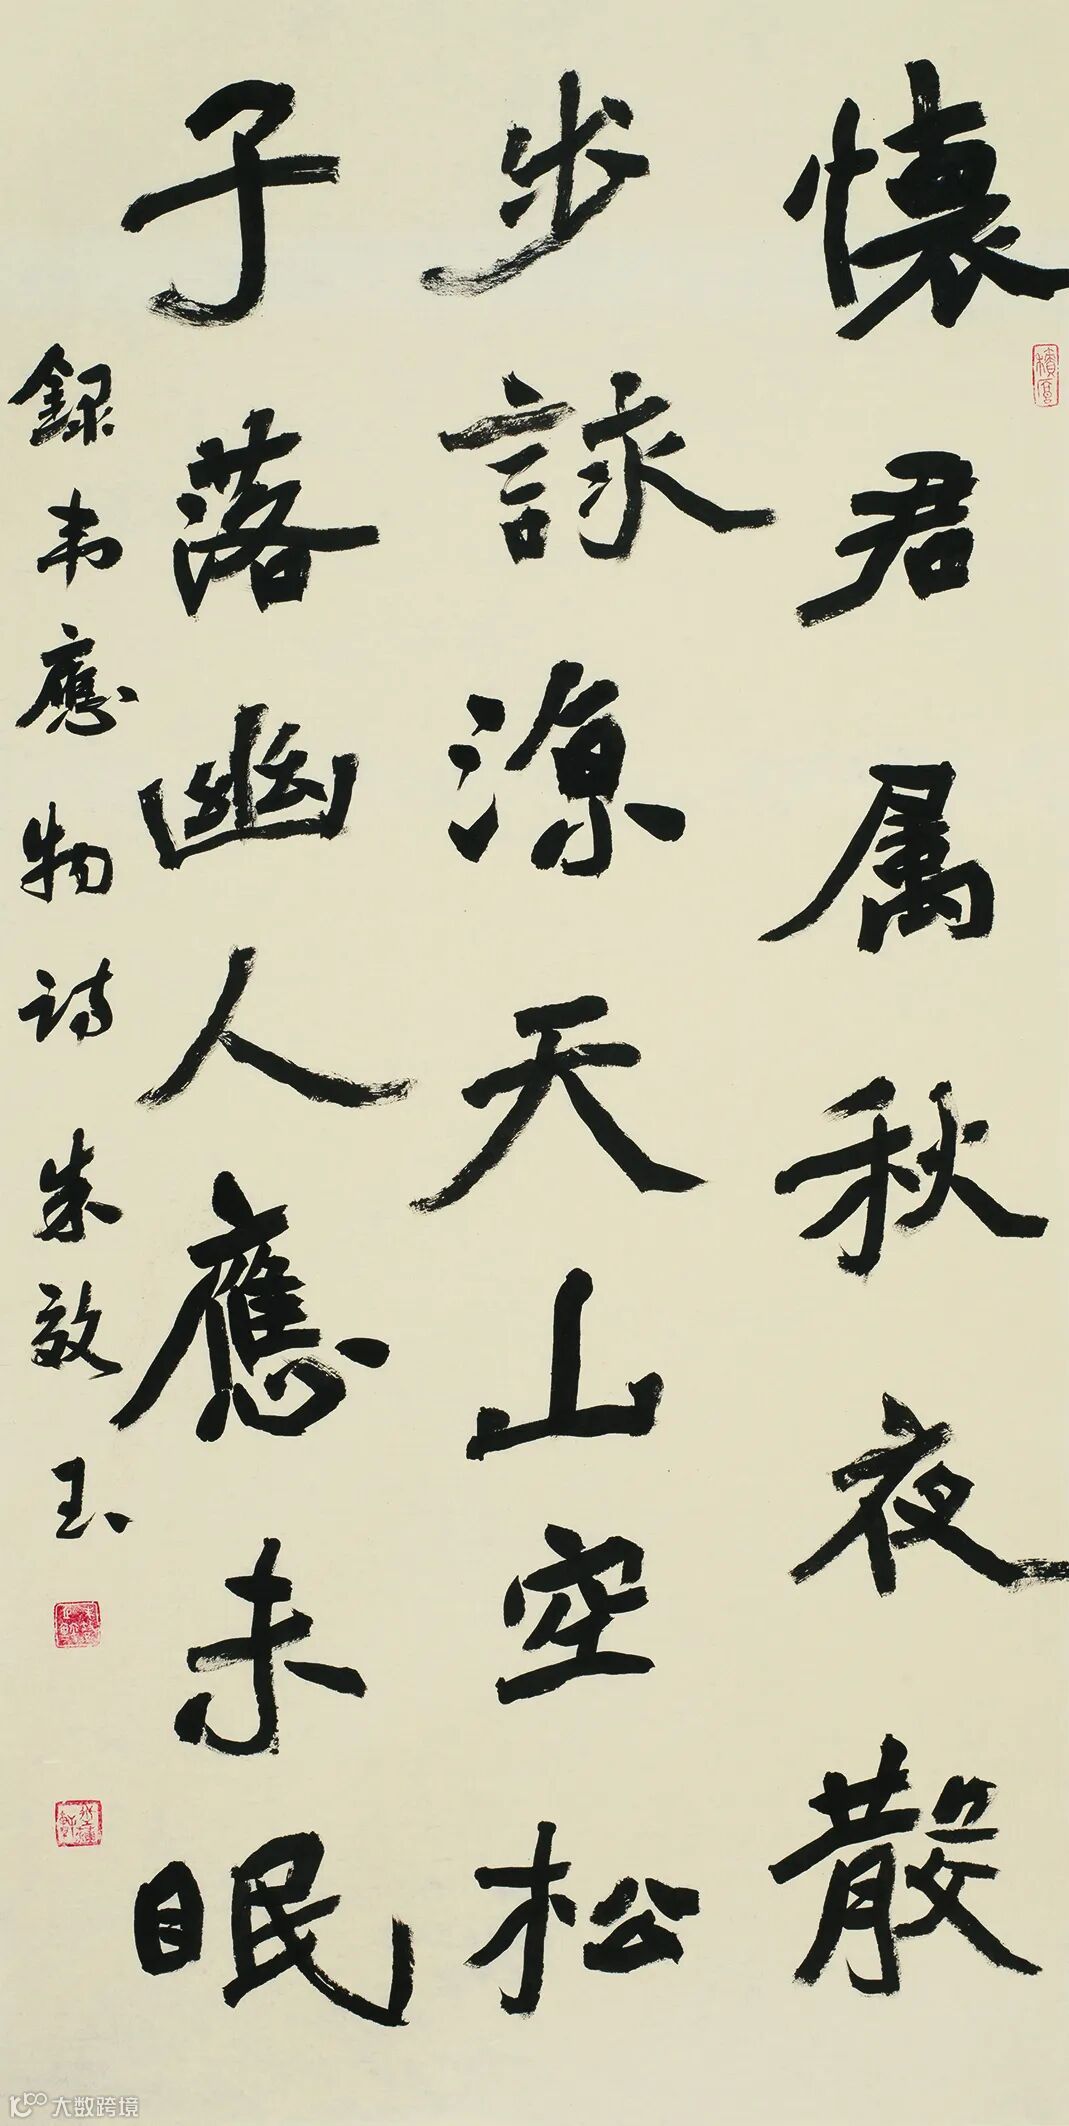 懷君属秋夜散
步詠涼天山空松
子落幽人應未眠
録韦應物诗 朱效玉
大数跨境